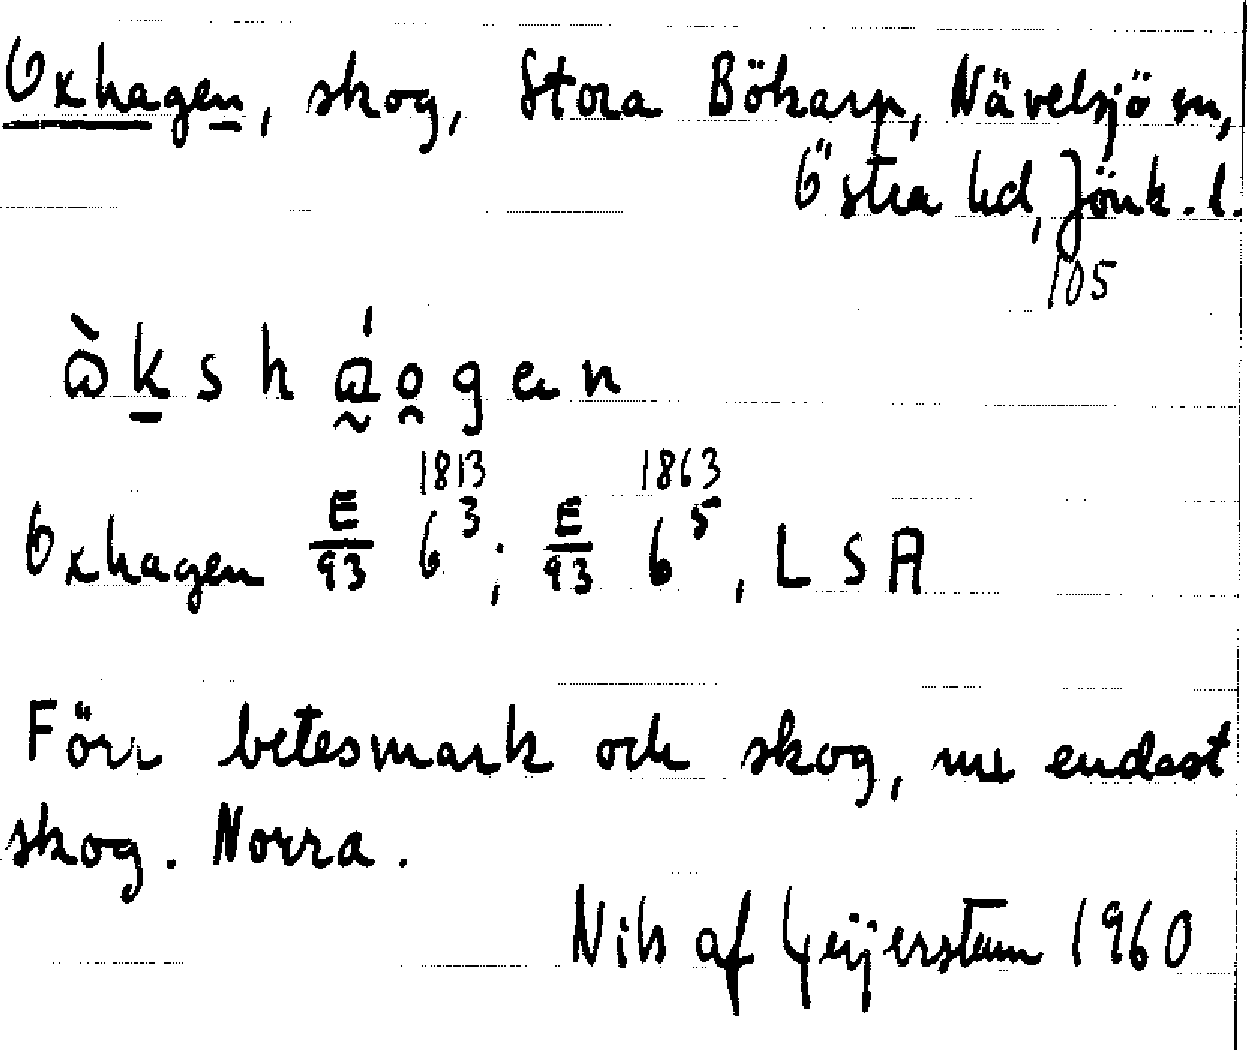 Oxhagen, skog, Stora Bökarp, Nävelsjö sn,
Östra hd, Jönk. l.
105
Oxhagen E/93 6³ 1813; E/93 6⁵ 1863, LSA
Förr betesmark och skog, nu endast
skog. Norra.
Nils af Geijerstam 1960